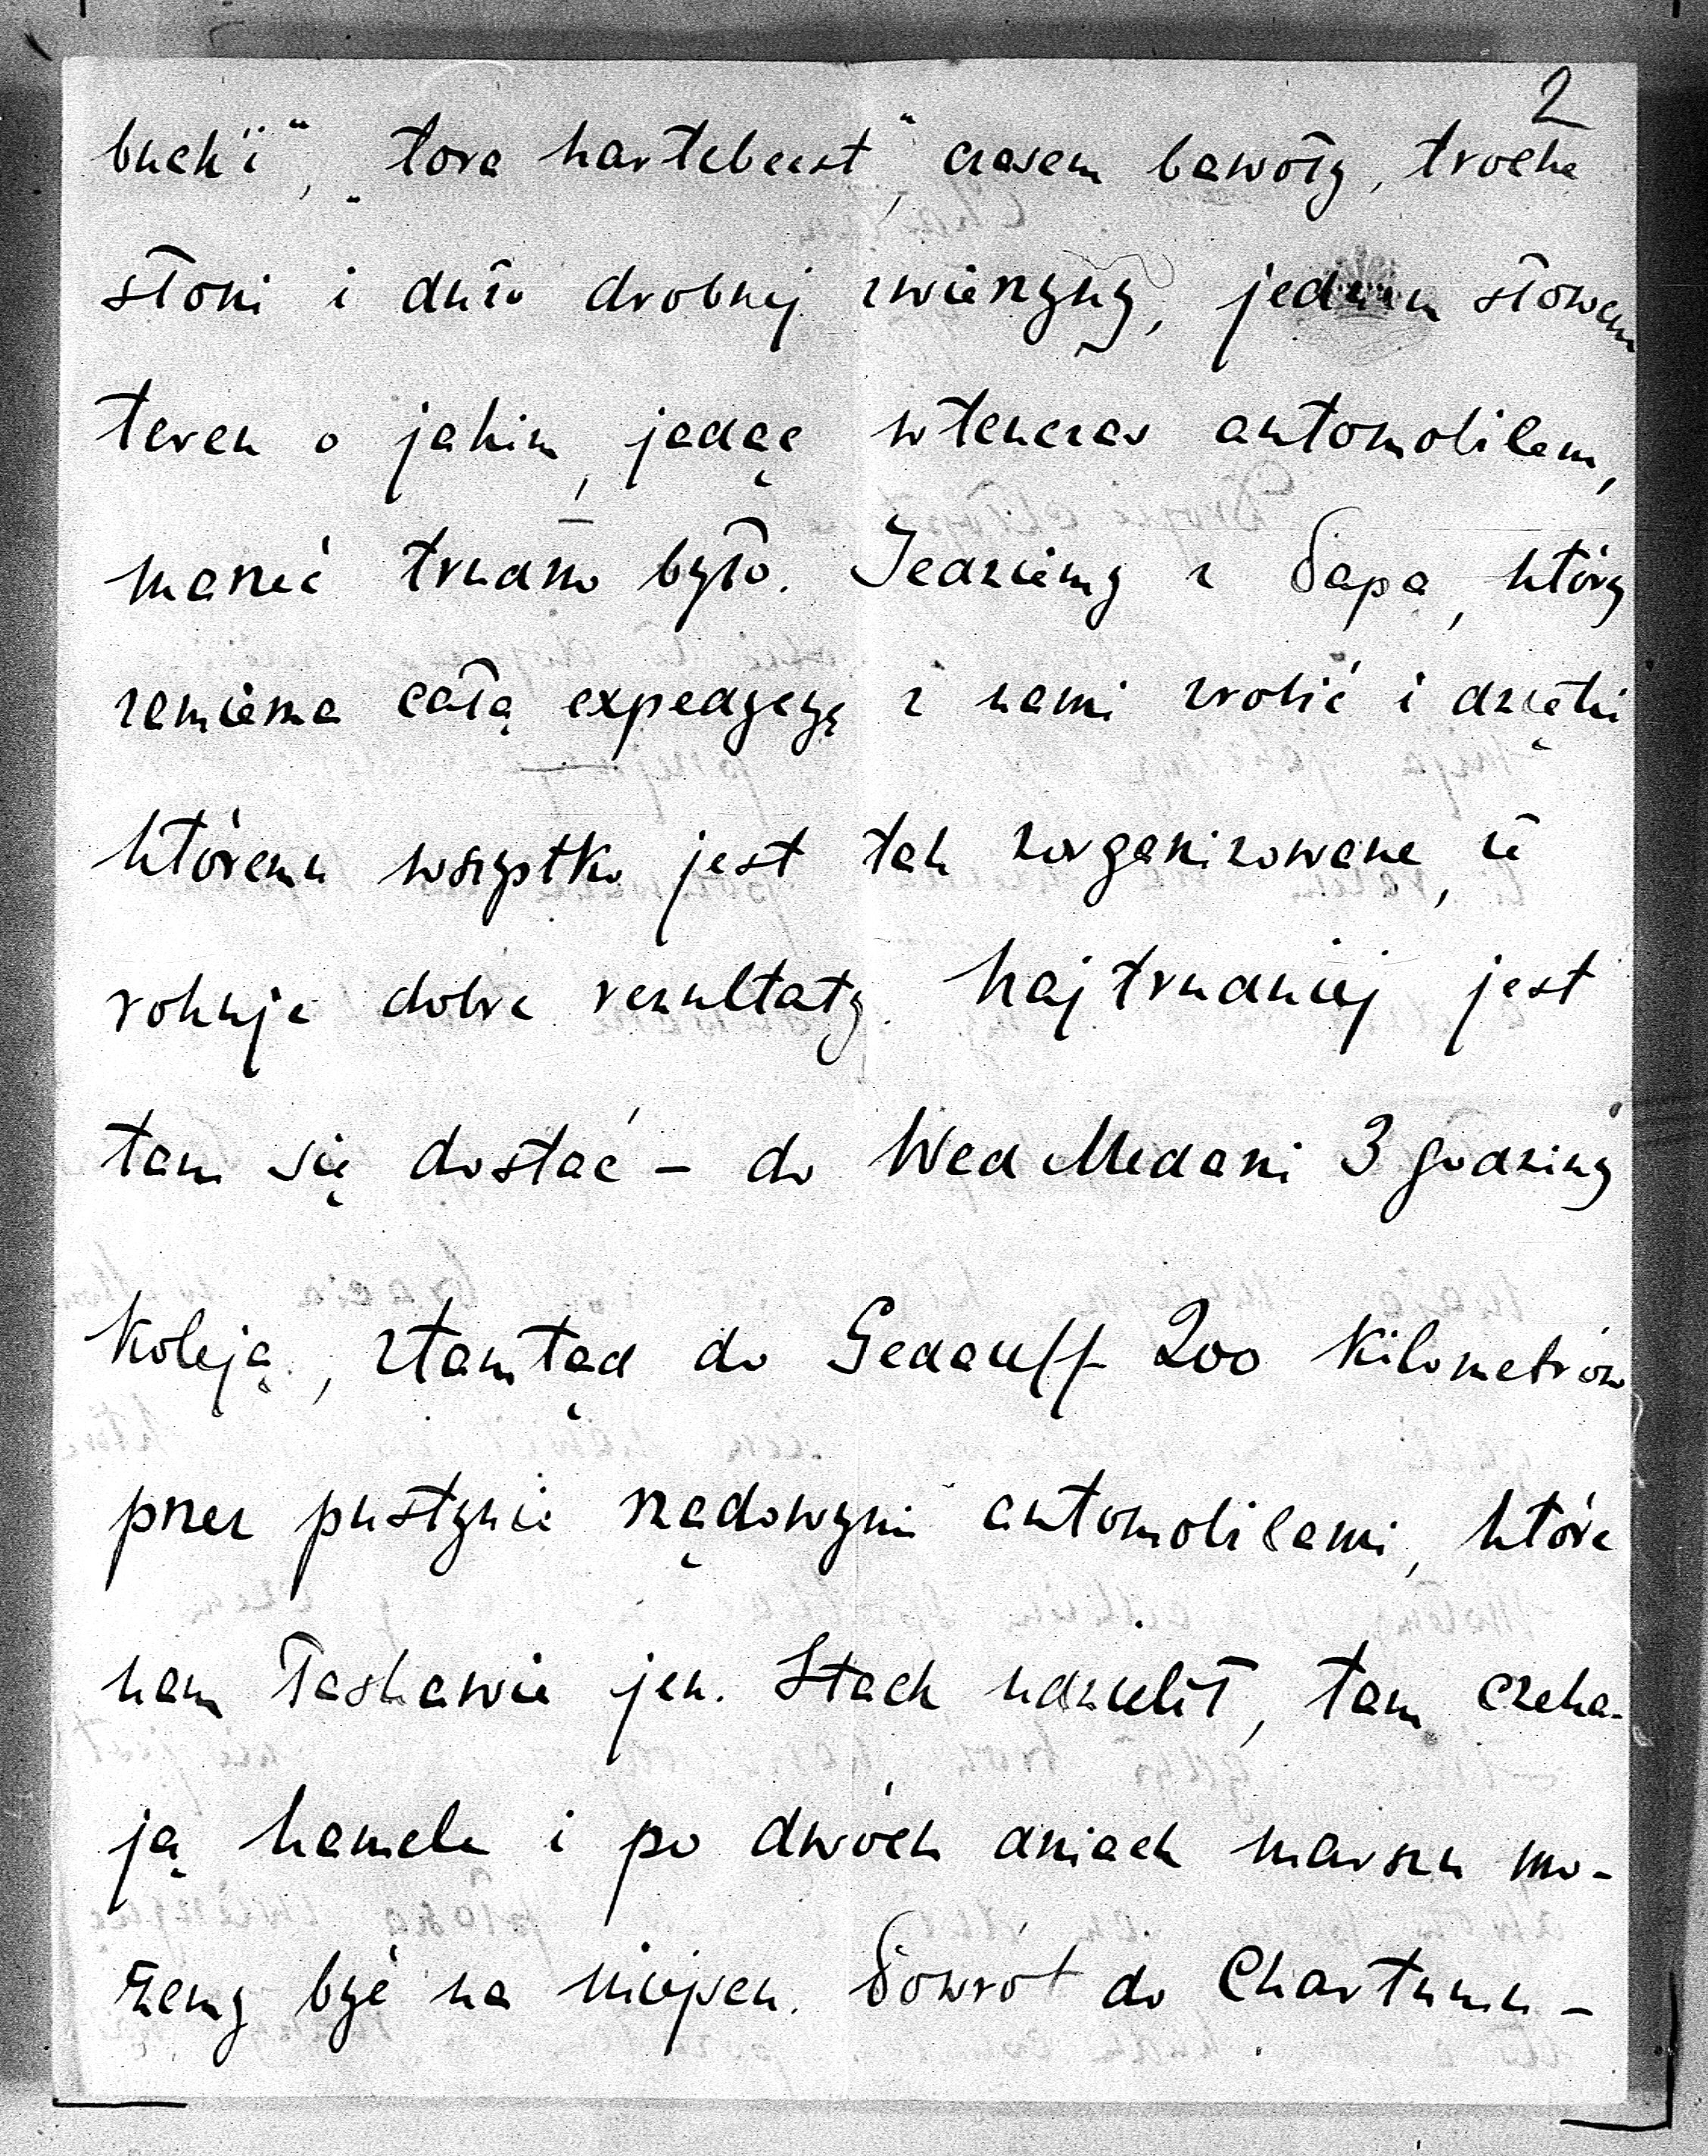 2
buck'i", "tora hartebeest", czasem bawoły, trochę
słoni i dużo drobnej zwierzyny, jednem słowem
teren o jakim, jadąc wtenczas automobilem,
marzeć trudno było. Jedziemy z Papą, który
zamierza całą expedycyę z nami zrobić i dzięki
któremu wszystko jest tak zorganizowane, że
rokuje dobre rezultaty. Najtrudniej jest
tam się dostać – do Wad Medani 3 godziny
koleją, ztamtąd do Gedareff 200 kilometrów
przez pustynię rządowymi automobilami, które
nam łaskawie jen. Stack udzielił, tam czeka-
ją kamele i po dwóch dniach marszu mo-
żemy być na miejscu. Powrót do Chartumu –